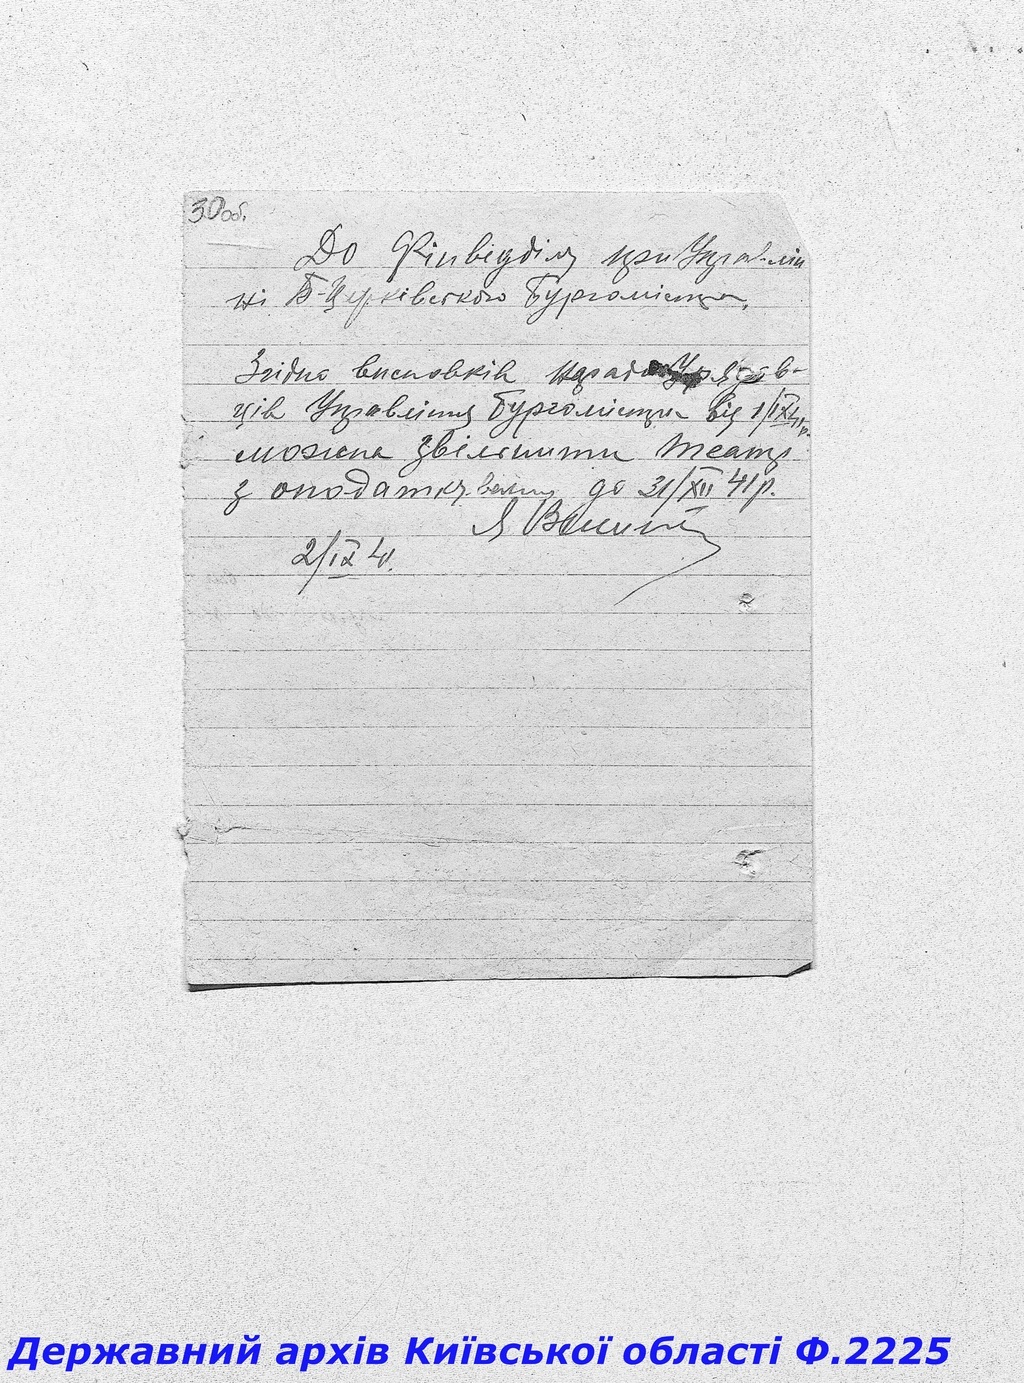 30 об.
До Фінвідділу при Управлін
ні Б-Церківського Бургомістра.
Згідно висновків наради Урядов-
ців Управління Бургомістра від 1/IX 41 р.
можна звільнити театр
з оподаткування до 31/XII 41 р.
2/IX 41.
Державний архів Київської області Ф.2225